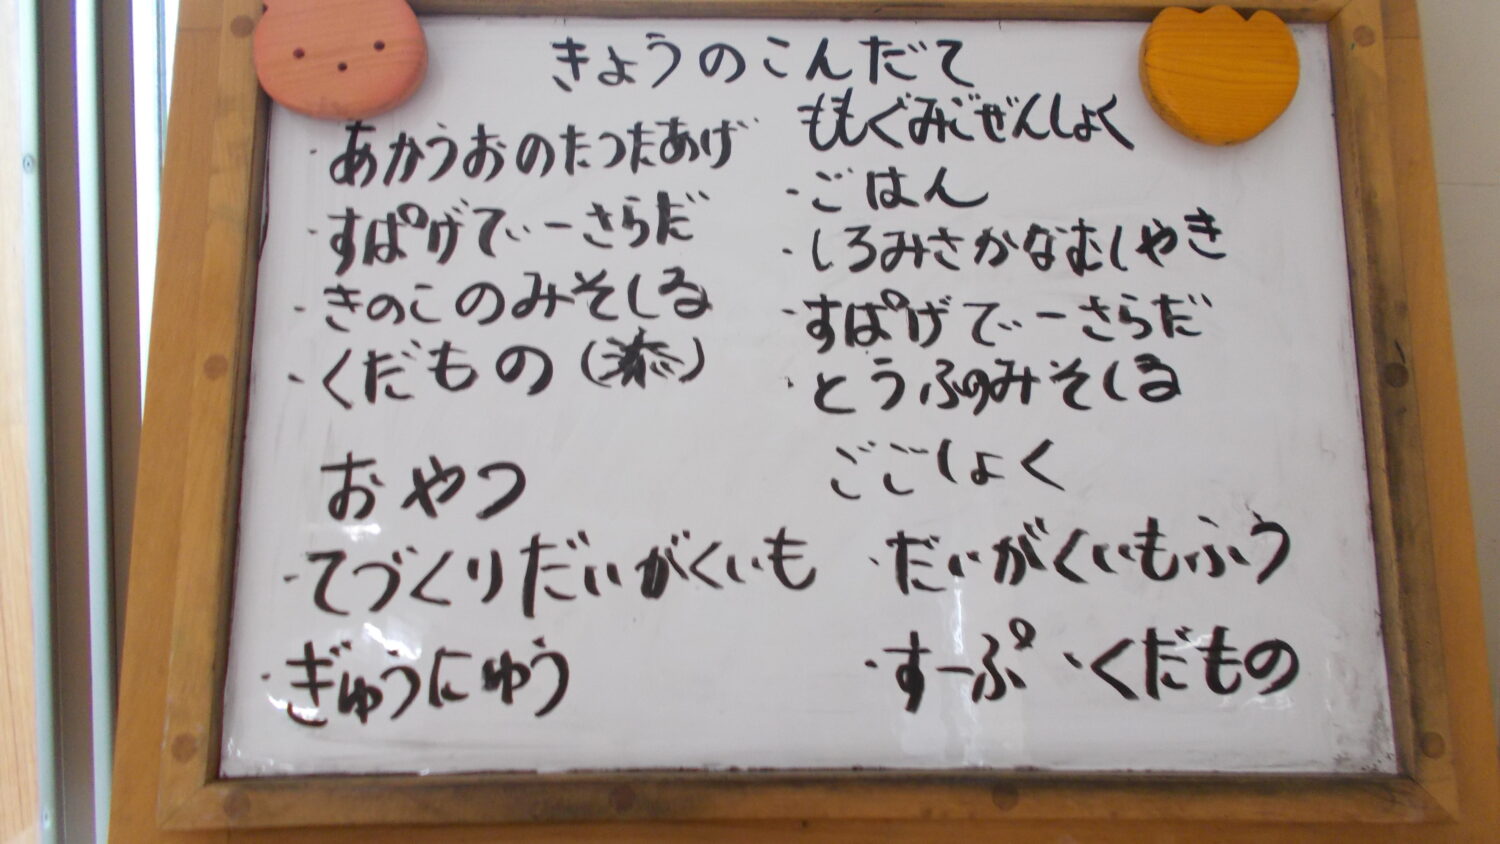 きょうのこんだて
・あかうおのたつたあげ
・すぱげてぃーさらだ
・きのこのみそしる
・くだもの
おやつ
・てづくりだいがくいも
・ぎゅうにゅう
ももぐみごぜんしょく
・ごはん
・しろみさかなむしやき
・すぱげてぃーさらだ
・とうふのみそしる
ごごしょく
・だいがくいもふう
・すーぷ ・くだもの